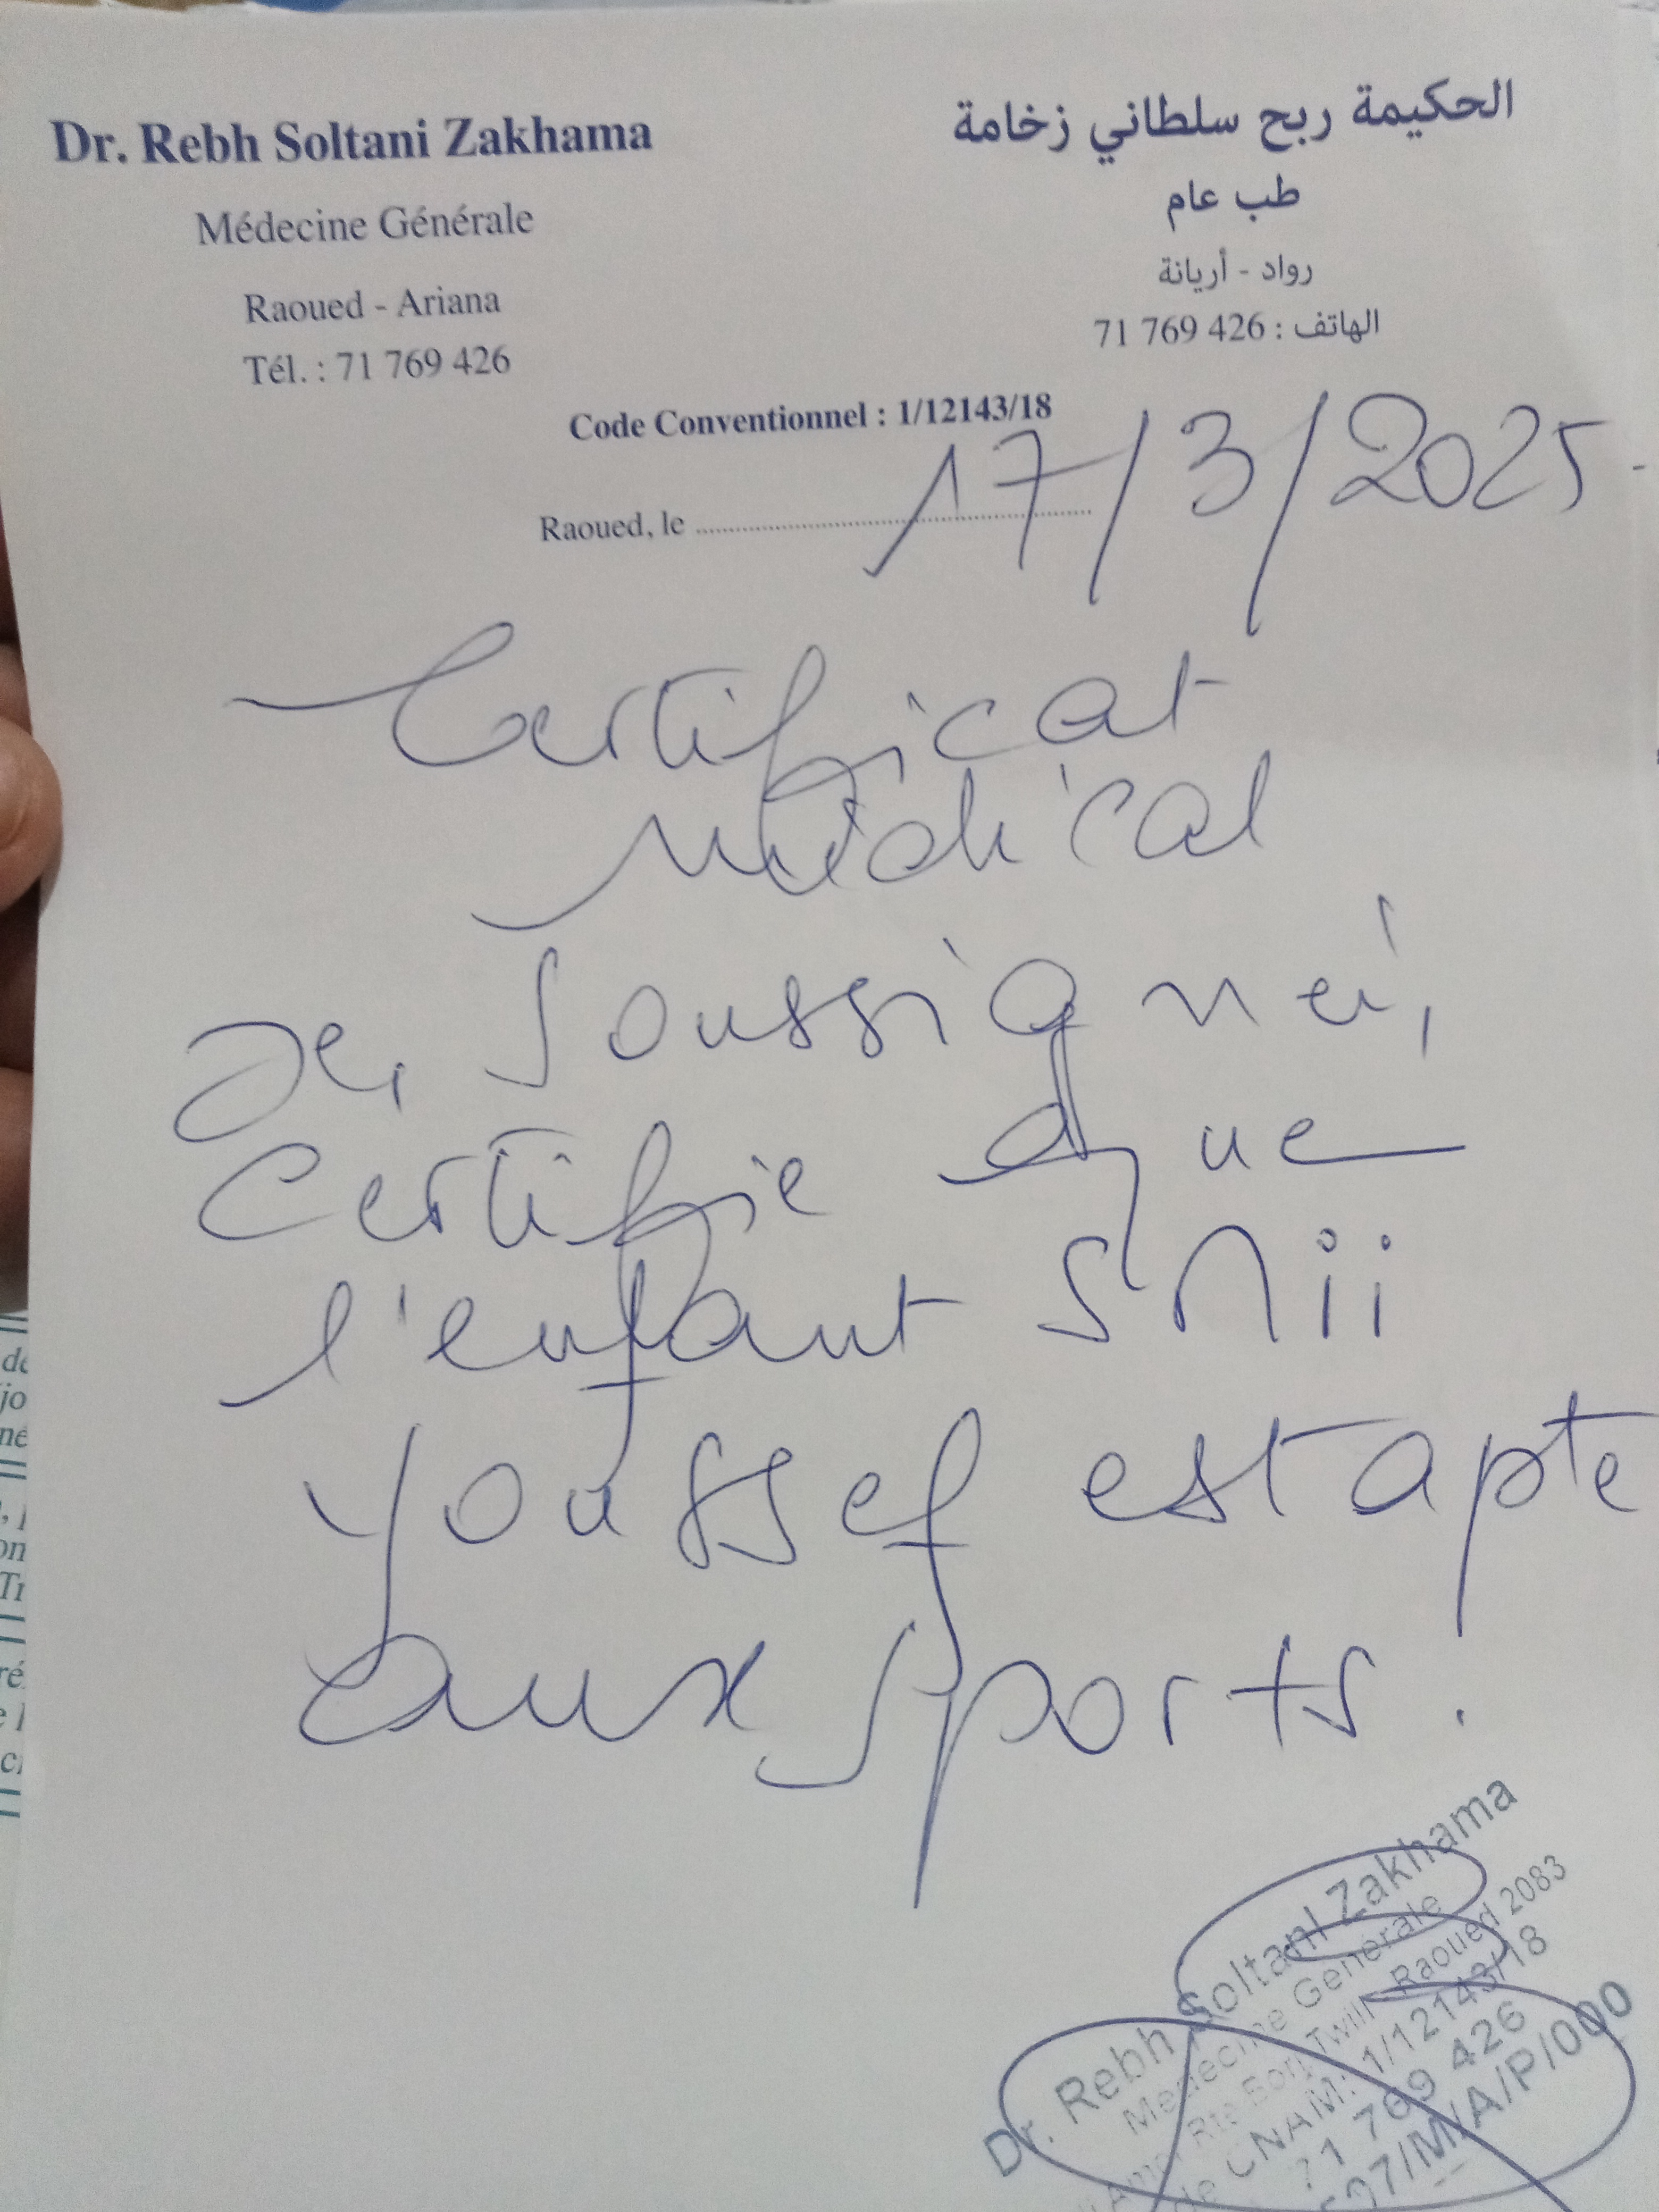 Dr. Rebh Soltani Zakhama
Médecine Générale
Raoued - Ariana
Tél. : 71 769 426
الحكيمة ربح سلطاني زخامة
طب عام
رواد - أريانة
الهاتف : 426 769 71
Code Conventionnel : 1/12143/18
Raoued, le 17/3/2025
Certificat
médical
Je, soussigné,
certifie que
l'enfant
Youssef est apte
aux sports.
Dr. Rebh Soltani Zakhama
Médecine Générale
Raoued 2083
CNAM: 1/12143/18
71 769 426
/M/A/P/000
de
jo
né
on
Tr
ré